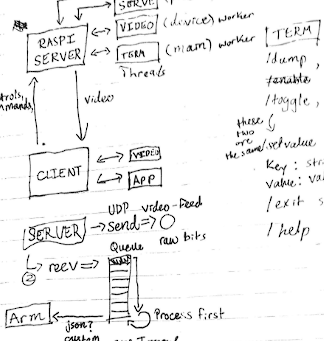 SERVE
VIDEO (device) worker
RASPI
SERVER
TERM (main) worker
Threads
video
CLIENT
VIDEO
APP
UDP video-feed
SERVER send
raw bits
Queue
② recv
Process first
Arm
json?
custom
TERM
/dump,
/enable
/toggle,
these
two
are
the same /setvalue
Key: str
value: va
/exit s
/help